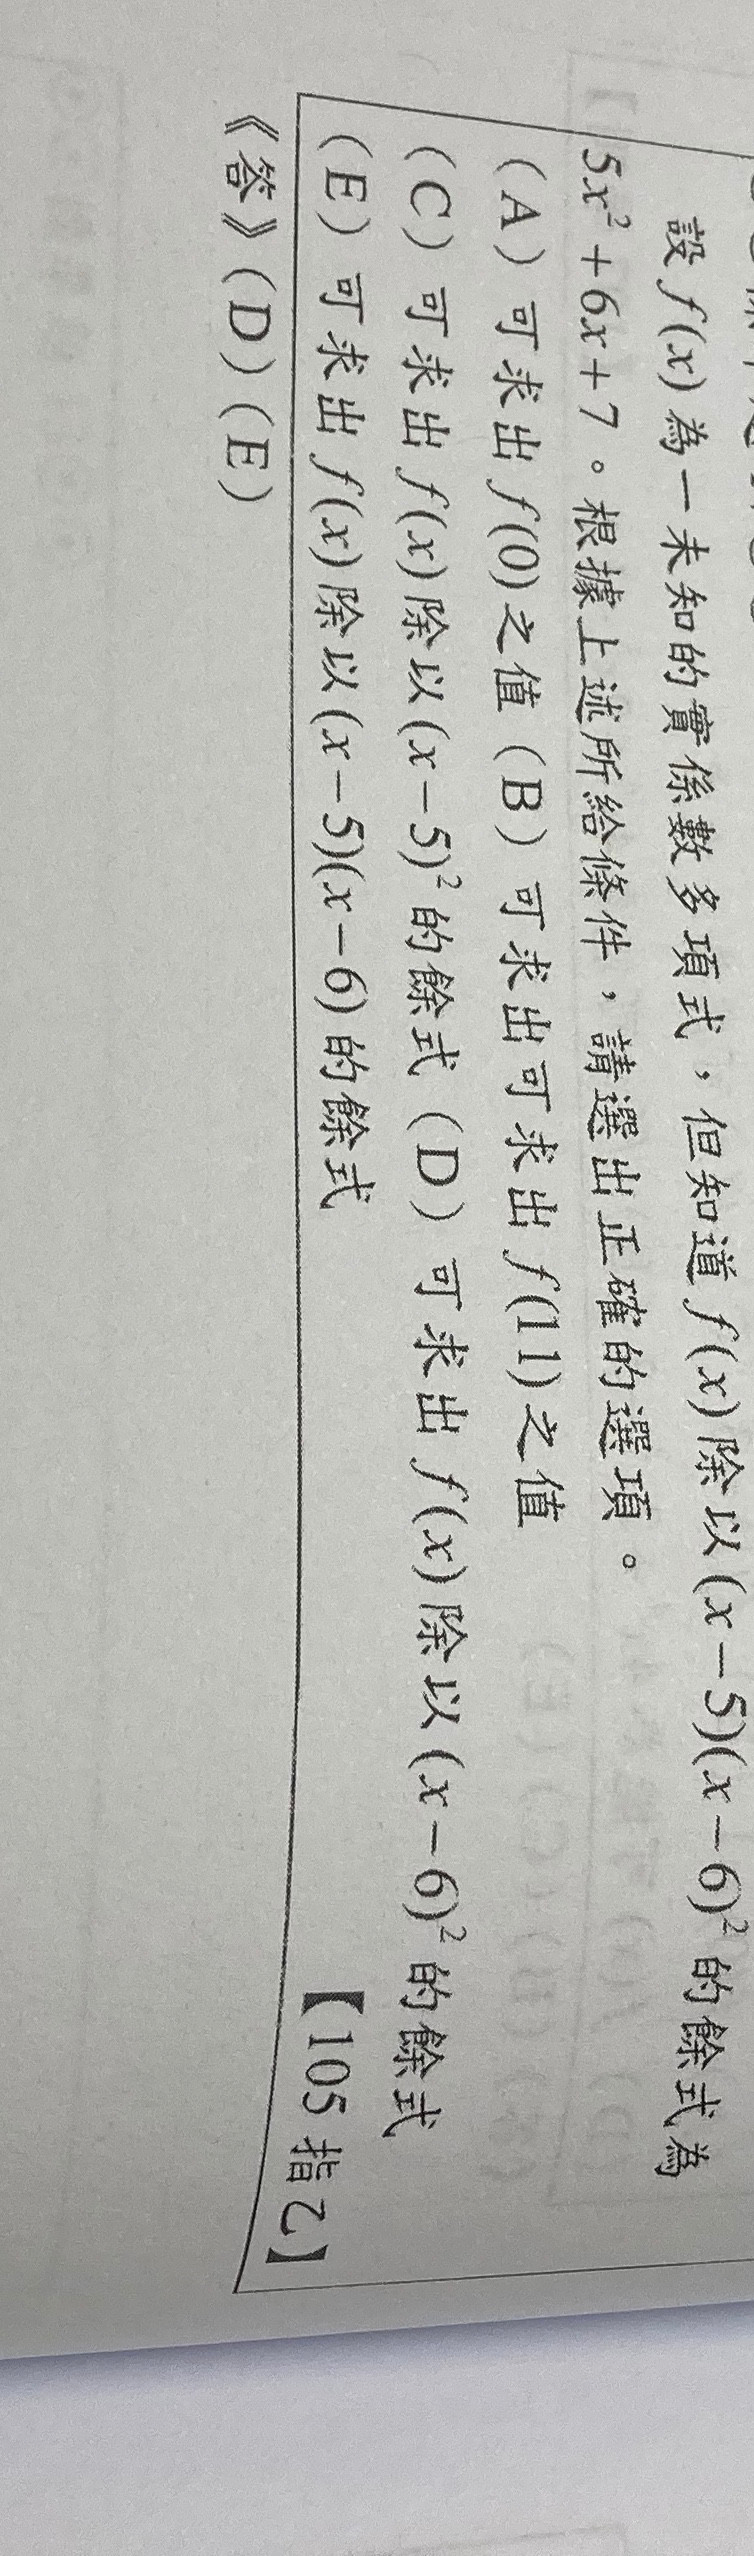 設 f(x) 為一未知的實係數多項式，但知道 f(x) 除以 (x−5)(x−6)² 的餘式為
5x²+6x+7。根據上述所給條件，請選出正確的選項。
（A）可求出 f(0) 之值（B）可求出可求出 f(11) 之值
（C）可求出 f(x) 除以 (x−5)² 的餘式（D）可求出 f(x) 除以 (x−6)² 的餘式
（E）可求出 f(x) 除以 (x−5)(x−6) 的餘式 【105 指乙】
《答》（D）（E）